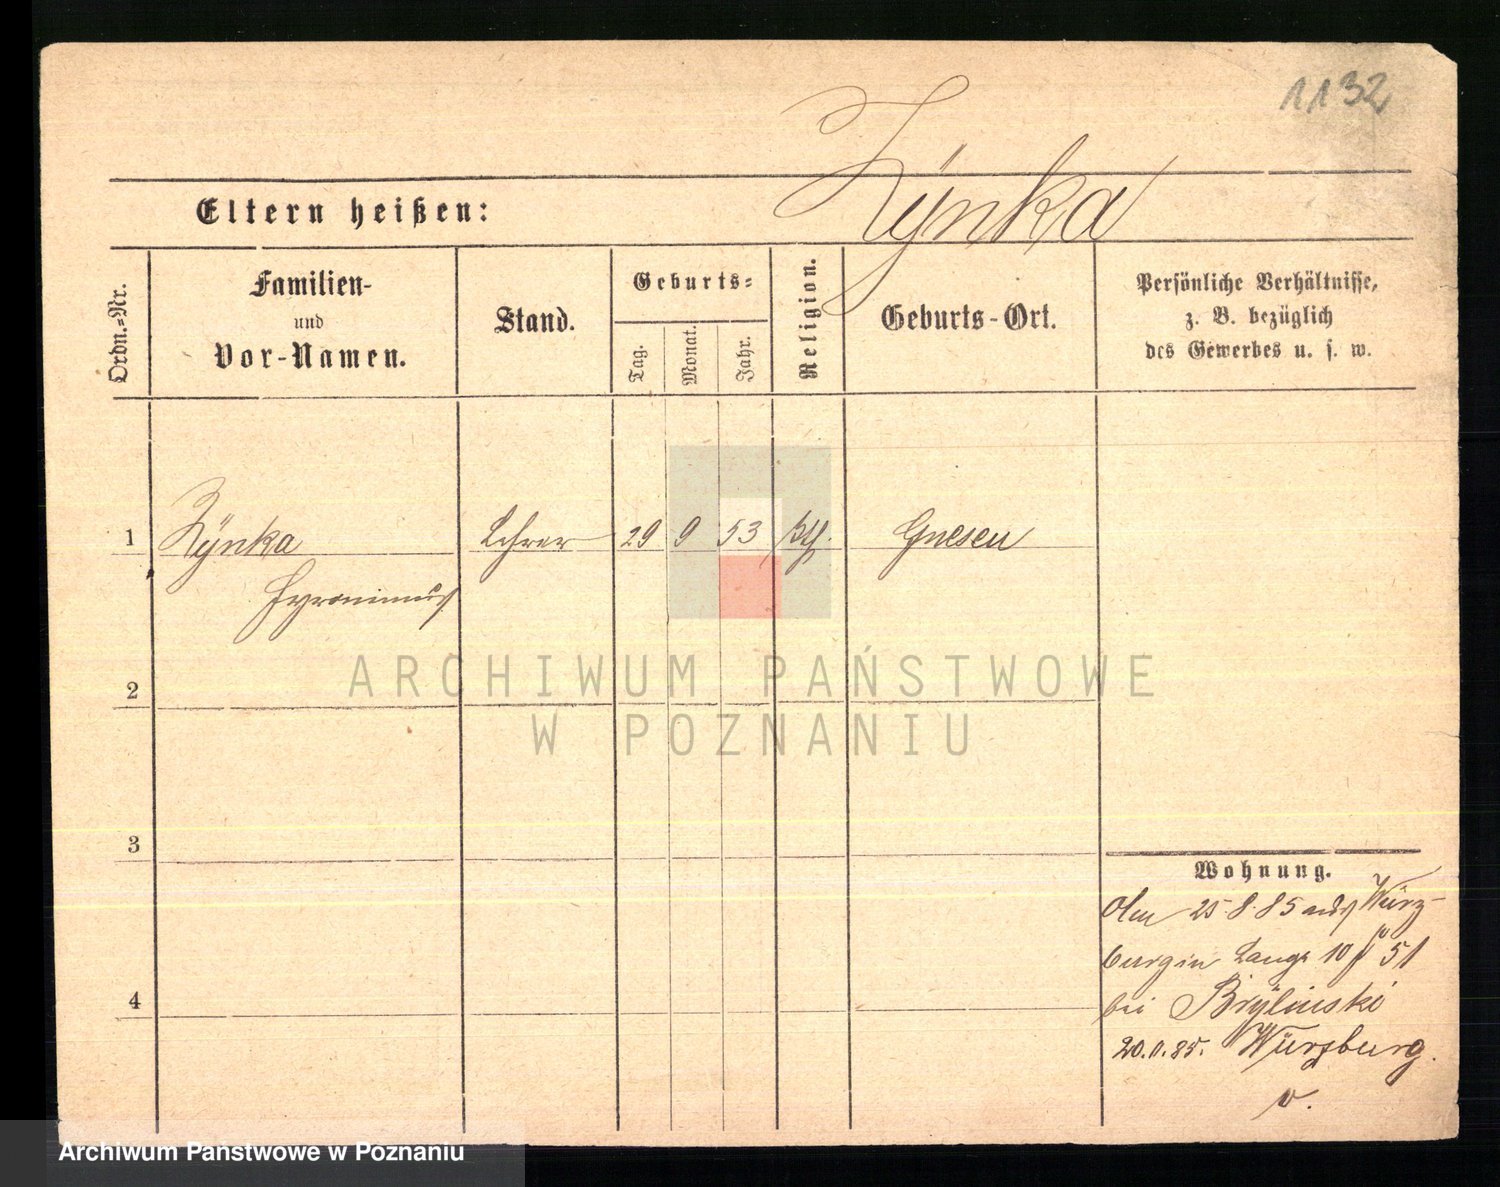 1132
Zynka
Eltern heißen:
Ordn.=Nr.
Familien-
und
Vor-Namen.
Stand.
Geburts=
Tag.
Monat.
Jahr.
Religion.
Geburts-Ort.
Persönliche Verhältnisse,
z. B. bezüglich
des Gewerbes u. s. w.
1
Zynka
Hyronimus
Lehrer
29
9
53
kth.
Gnesen
2
3
4
Wohnung.
25.8.85 aus Würz-
burg in Lange 10 51
bei Brylinski
85. Würzburg.
v.
ARCHIWUM PAŃSTWOWE
W POZNANIU
Archiwum Państwowe w Poznaniu